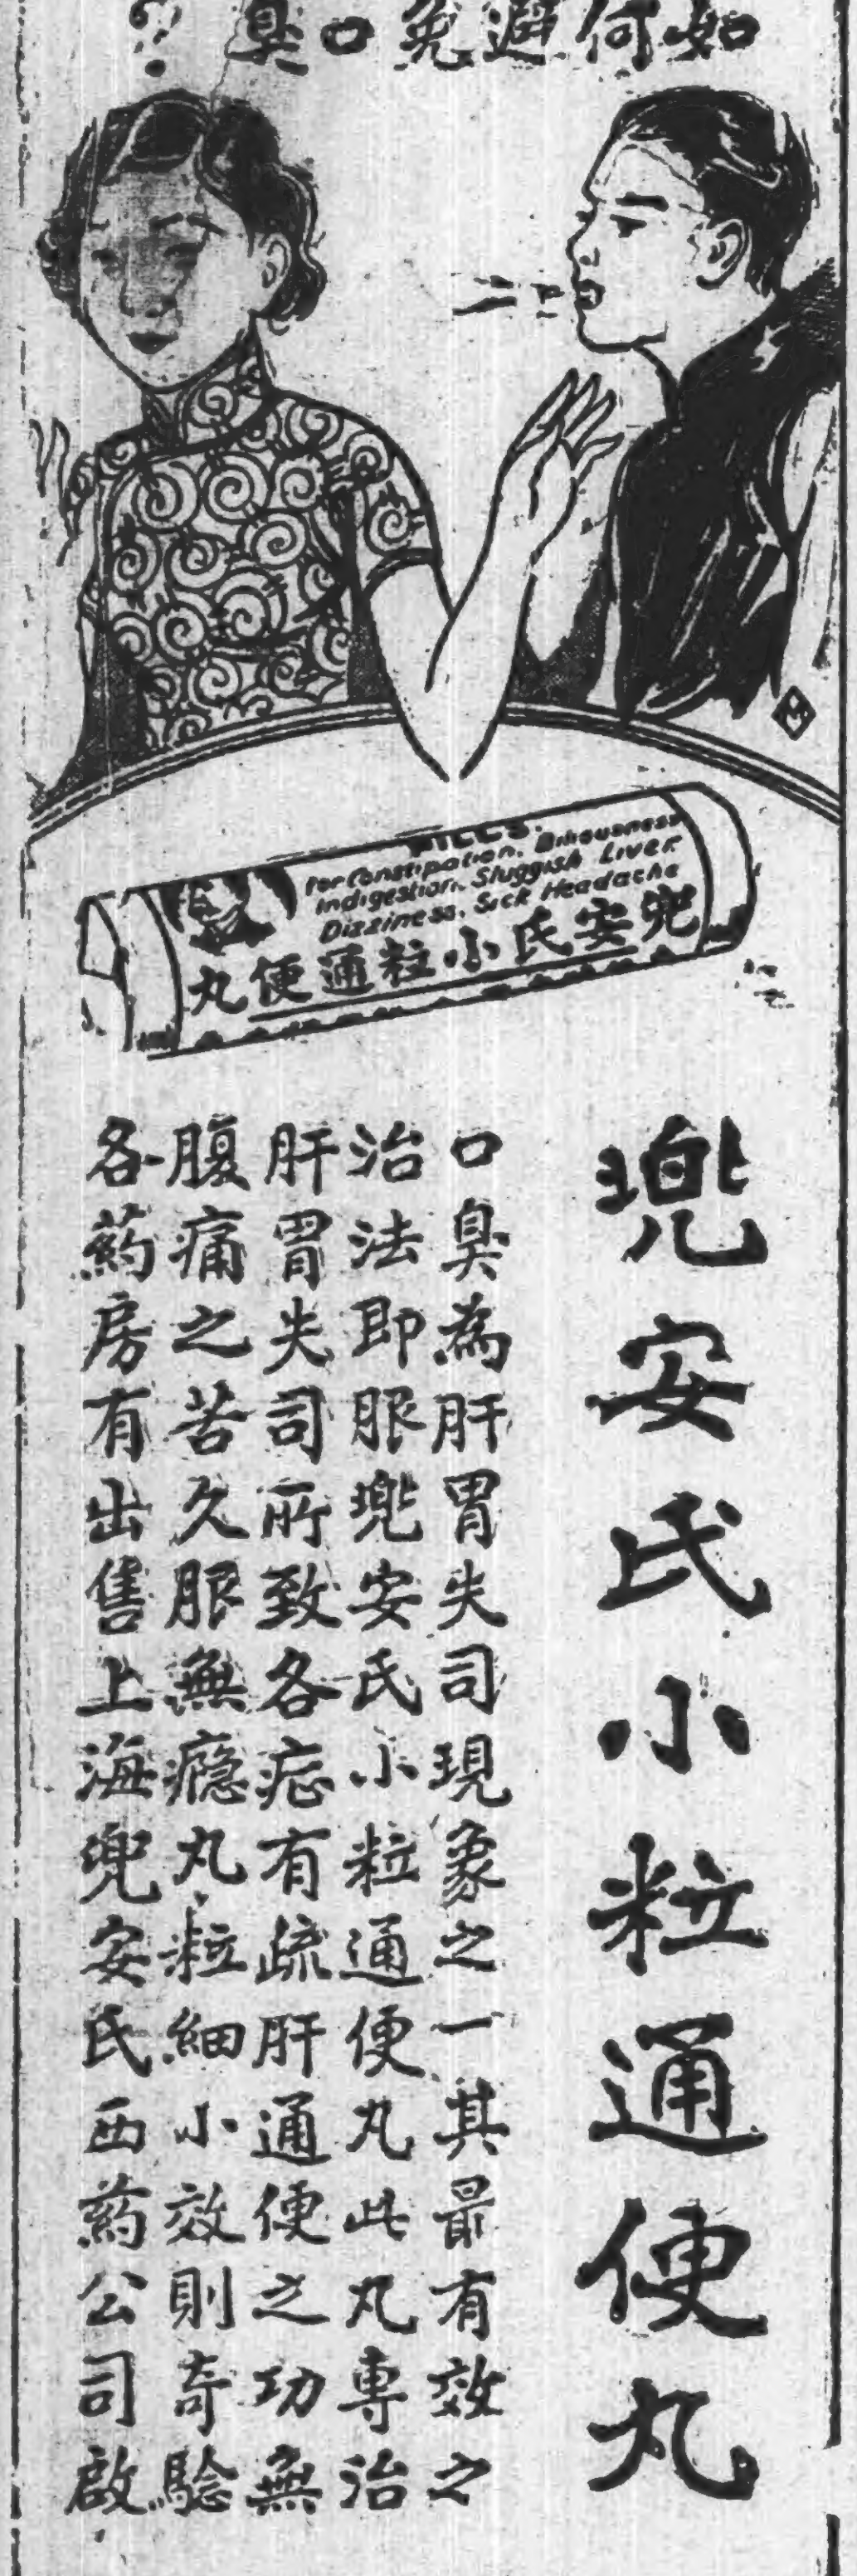 如何避免口臭?
PILLS.
For Constipation, Biliousness
Indigestion, Sluggish Liver
Dizziness, Sick Headache
兜安氏小粒通便丸
兜安氏小粒通便丸
口臭為肝胃失司現象之一其最有效之
治法即服兜安氏小粒通便丸此丸專治
肝胃失司所致各症有疏肝通便之功無
腹痛之苦久服無癮丸粒細小效則奇驗
各葯房有出售上海兜安氏西葯公司啟